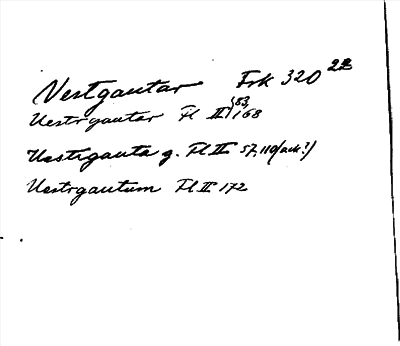 Vestgautar Frk 320 22
Uestrgautar Fl II 53, 168
Uestrgauta g. Fl II 57, 110 (ack?)
Uestrgautum Fl II 172